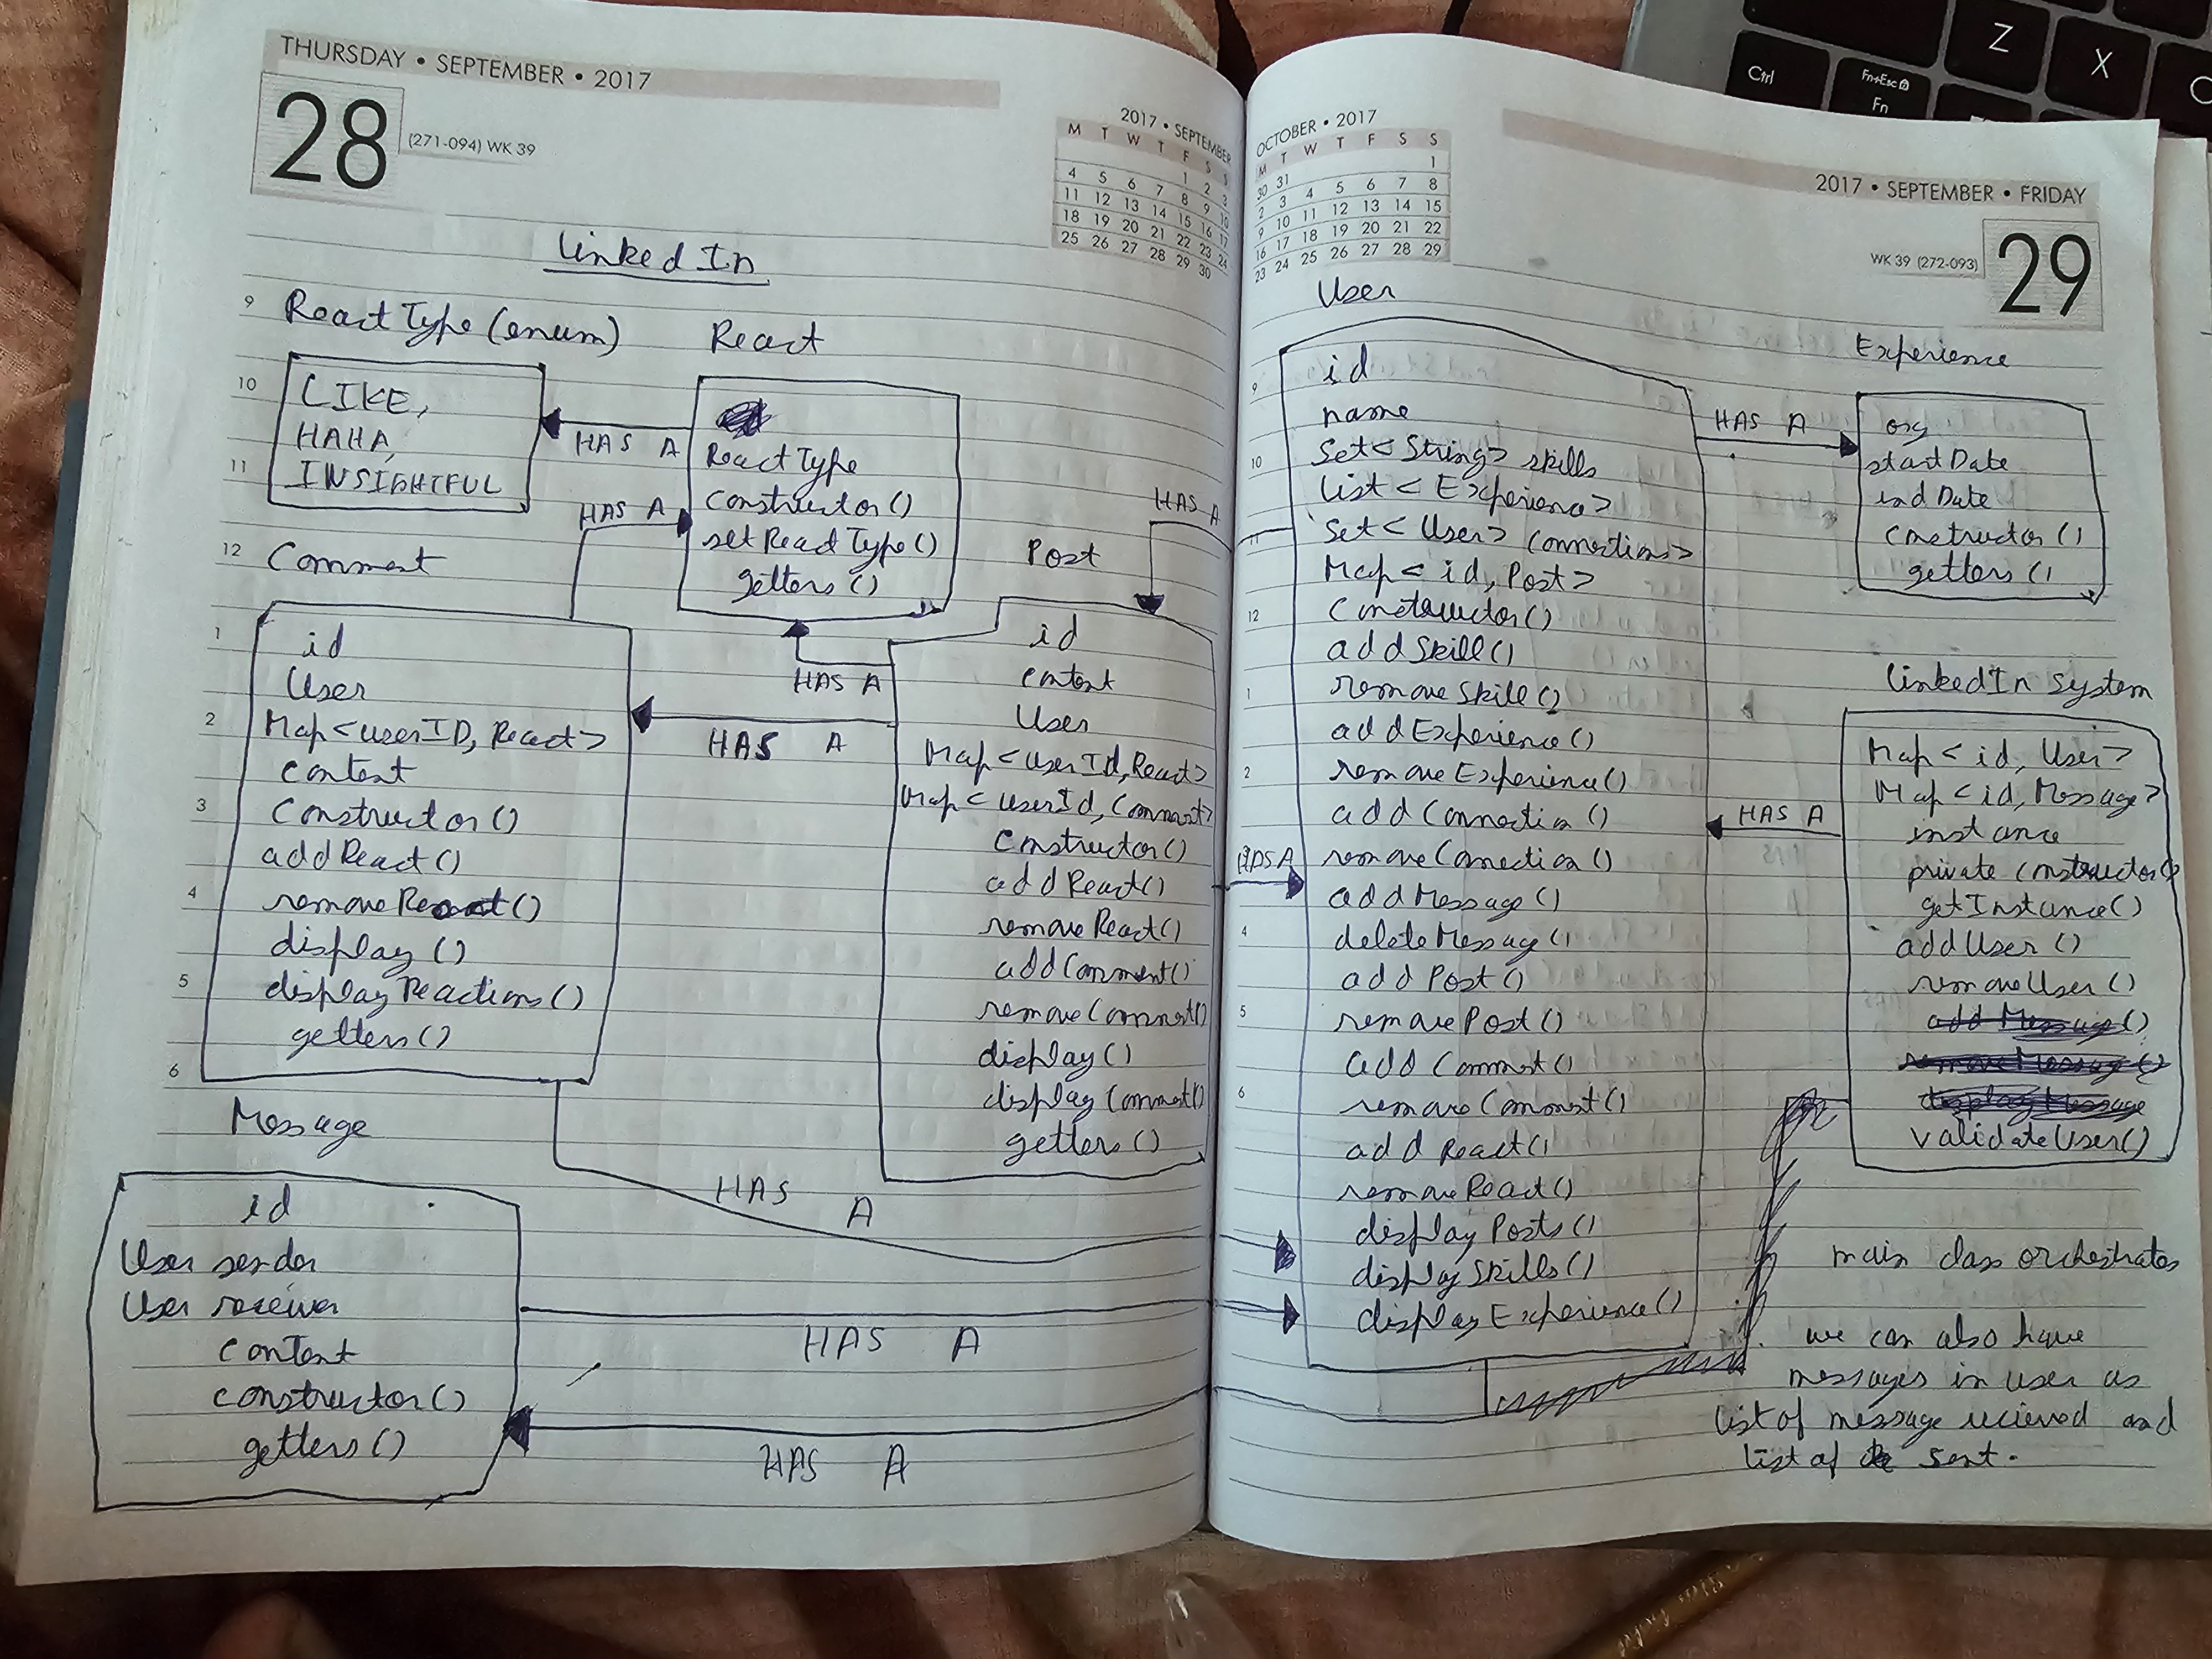 THURSDAY • SEPTEMBER • 2017
28
(271-094) WK 39
2017 • SEPTEMBER
M T W T F S S
1 2 3
4 5 6 7 8 9 10
11 12 13 14 15 16 17
18 19 20 21 22 23 24
25 26 27 28 29 30
linkedIn
9
React Type (enum)
React
10
LIKE,
HAHA,
11
INSIGHTFUL
HAS A
React Type
constructor()
set React Type()
getters()
HAS A
12
Comment
1
id
User
2
Map<userID, React>
content
3
constructor()
add React()
4
remove React()
display()
5
display Reactions()
getters()
6
HAS A
HAS A
HAS A
Post
id
content
User
Map<userId, React>
Map<userId, Comment>
constructor()
add React()
remove React()
add Comment()
remove Comment()
display()
display Comment()
getters()
HAS A
Message
id
User sender
User receiver
content
constructor()
getters()
HAS A
HAS A
OCTOBER • 2017
M T W T F S S
30 31 1
2 3 4 5 6 7 8
9 10 11 12 13 14 15
16 17 18 19 20 21 22
23 24 25 26 27 28 29
2017 • SEPTEMBER • FRIDAY
WK 39 (272-093)
29
User
9
id
name
10
Set<String> skills
list<Experience>
11
Set<User> connections>
Map<id, Post>
12
constructor()
add Skill()
1
remove Skill()
add Experience()
2
remove Experience()
add Connection()
HAS A
remove Connection()
add Message()
4
delete Message()
add Post()
5
remove Post()
add Comment()
6
remove Comment()
add React()
remove React()
display Posts()
display Skills()
display Experience()
HAS A
Experience
org
start Date
end Date
constructor()
getters()
linkedIn System
Map<id, User>
Map<id, Message>
instance
private constructor()
getInstance()
add User()
remove User()
add Message()
remove Message()
display Message
validate User()
HAS A
main class orchestrates
we can also have
messages in user as
list of message recieved and
list of sent.
Z
X
C
Ctrl
Fn+Esc
Fn